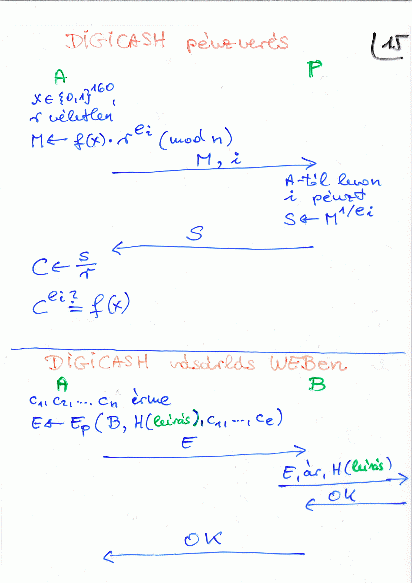 DIGICASH pénzverés
15
A
P
x ∈ {0,1}^160,
r véletlen
M ← f(x) · r^ei (mod n)
M, i
A-tól levon
i pénzt
S ← M^1/ei
S
C ← S/r
C^ei ?= f(x)
DIGICASH vásárlás WEBen
A
B
c1, c2, ... cn érme
E ← Ep(B, H(leírás), c1, ..., ce)
E
E, ár, H(leírás)
OK
OK